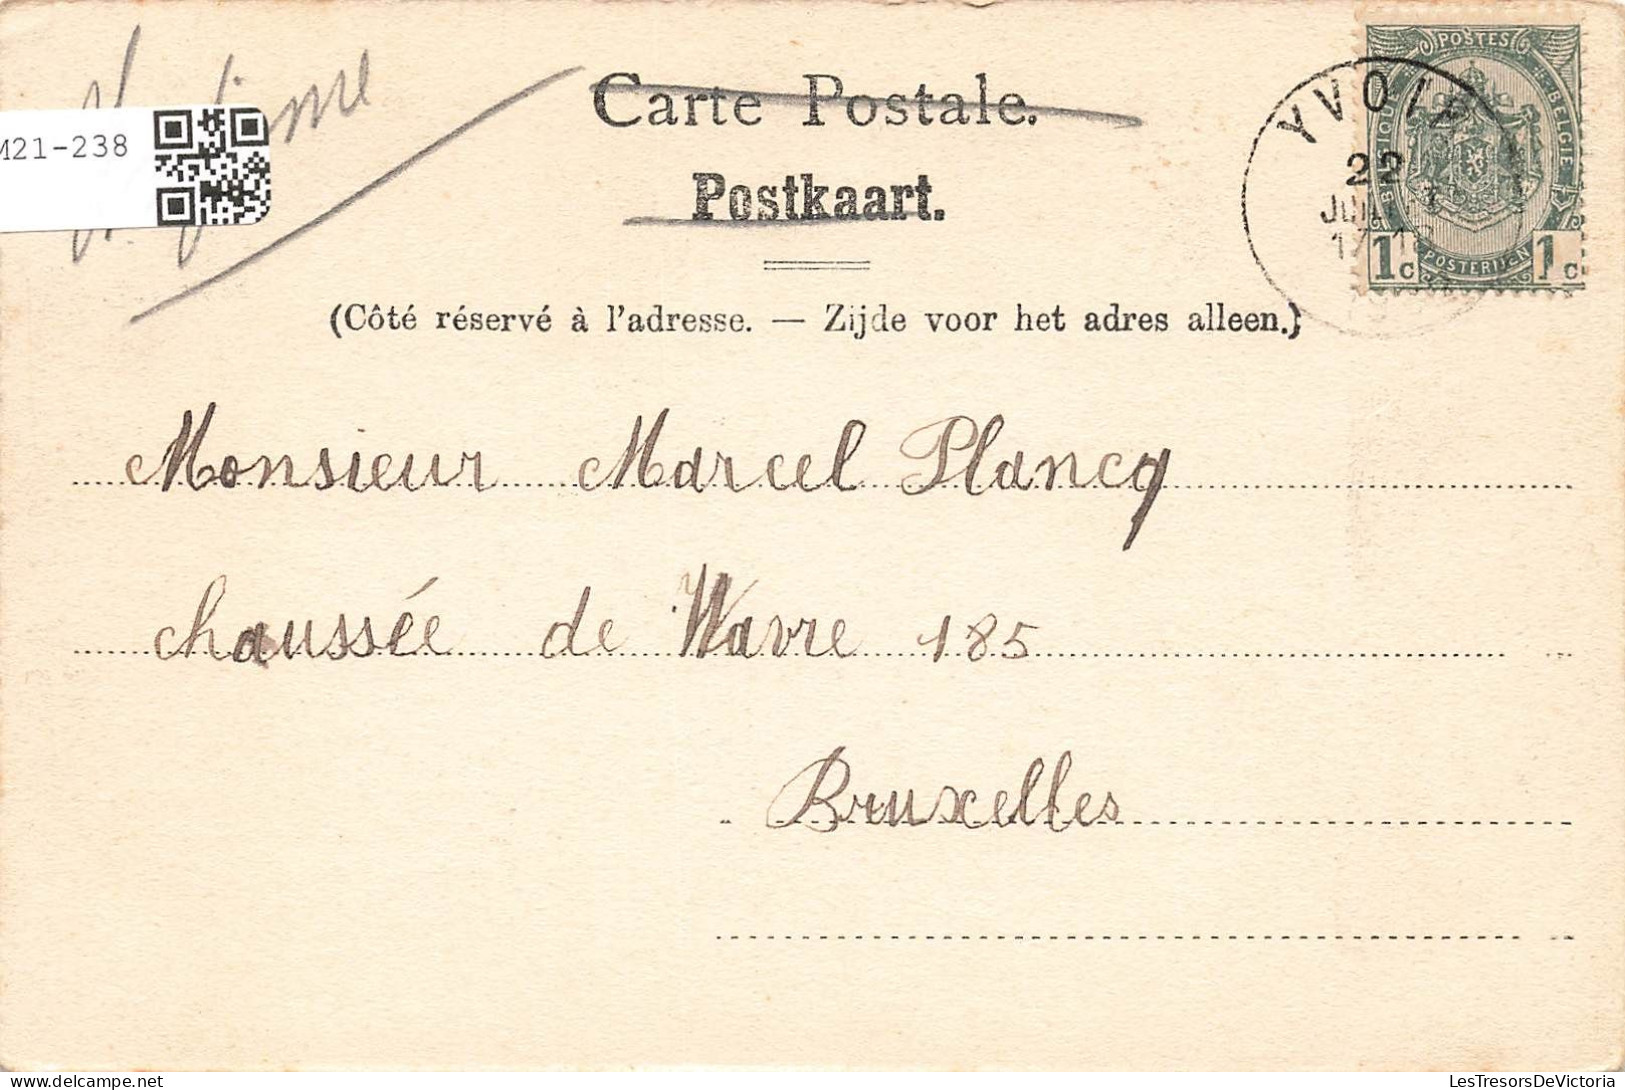 M21-238
Carte Postale.
Postkaart.
(Côté réservé à l'adresse. — Zijde voor het adres alleen.)
POSTES
BELGIQUE
BELGIE
POSTERIJEN
1c 1c
YVOIR
22
JUIL
Monsieur Marcel Plancq
chaussée de Wavre 185
Bruxelles
LesTresorsDeVictoria